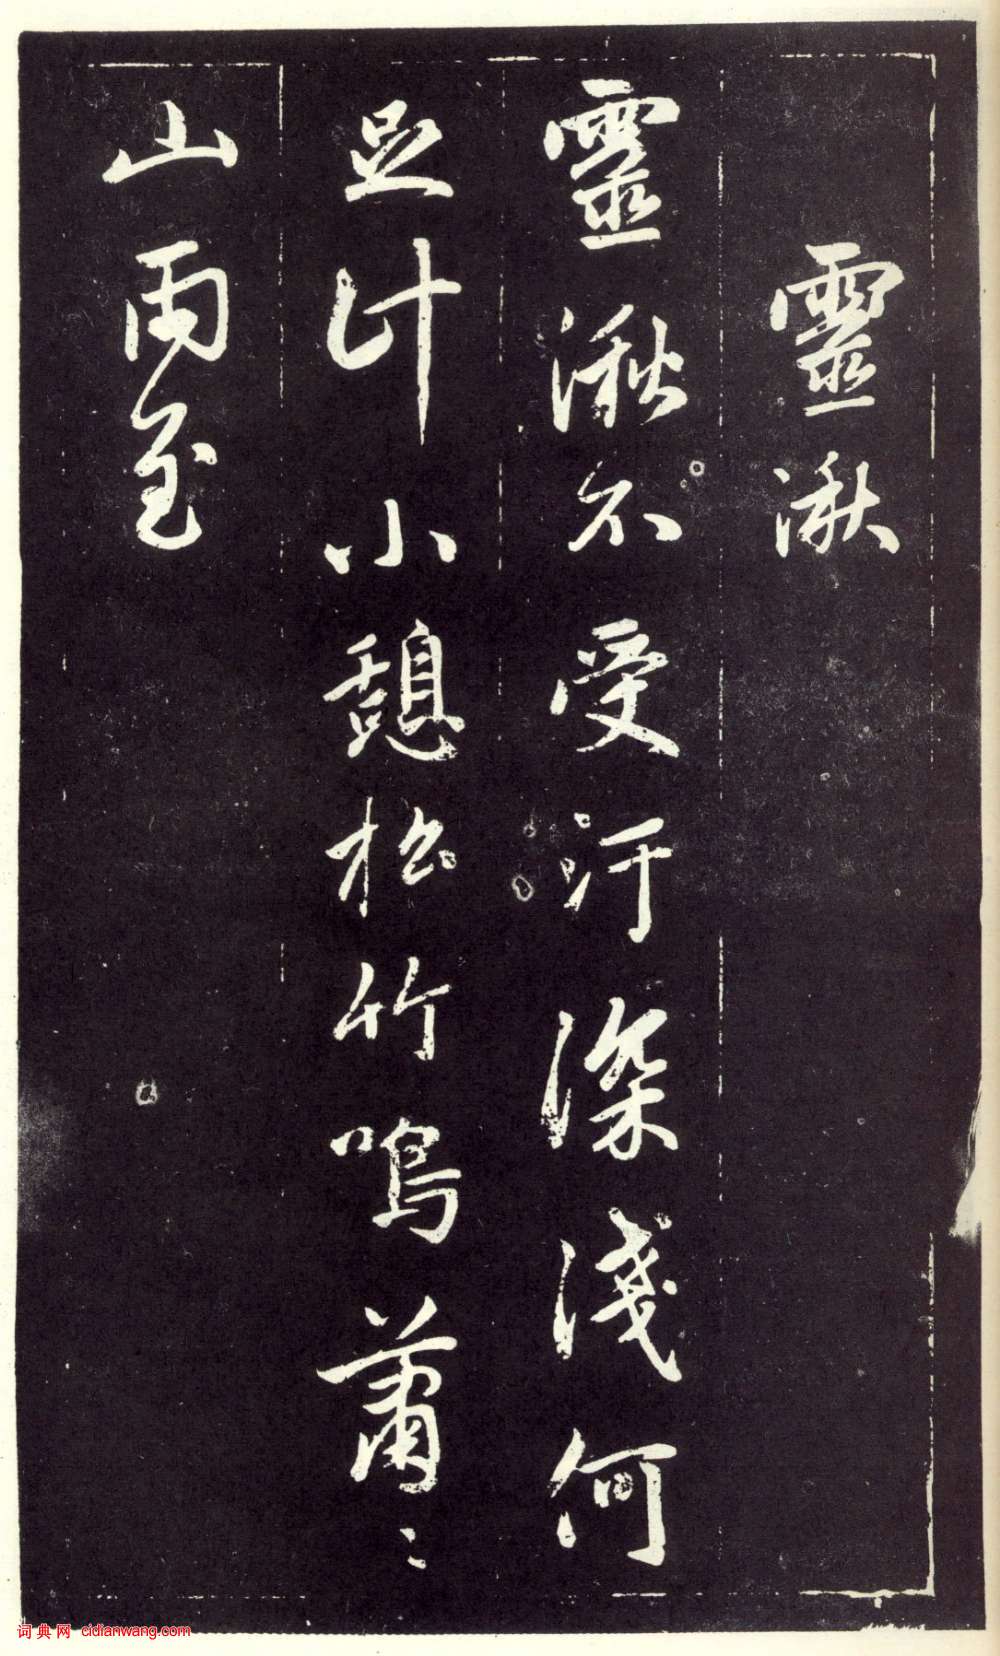 靈湫
靈湫不受汙深淺何
足計小憩松竹鳴蕭〻
山雨至
词典网 cidianwang.com